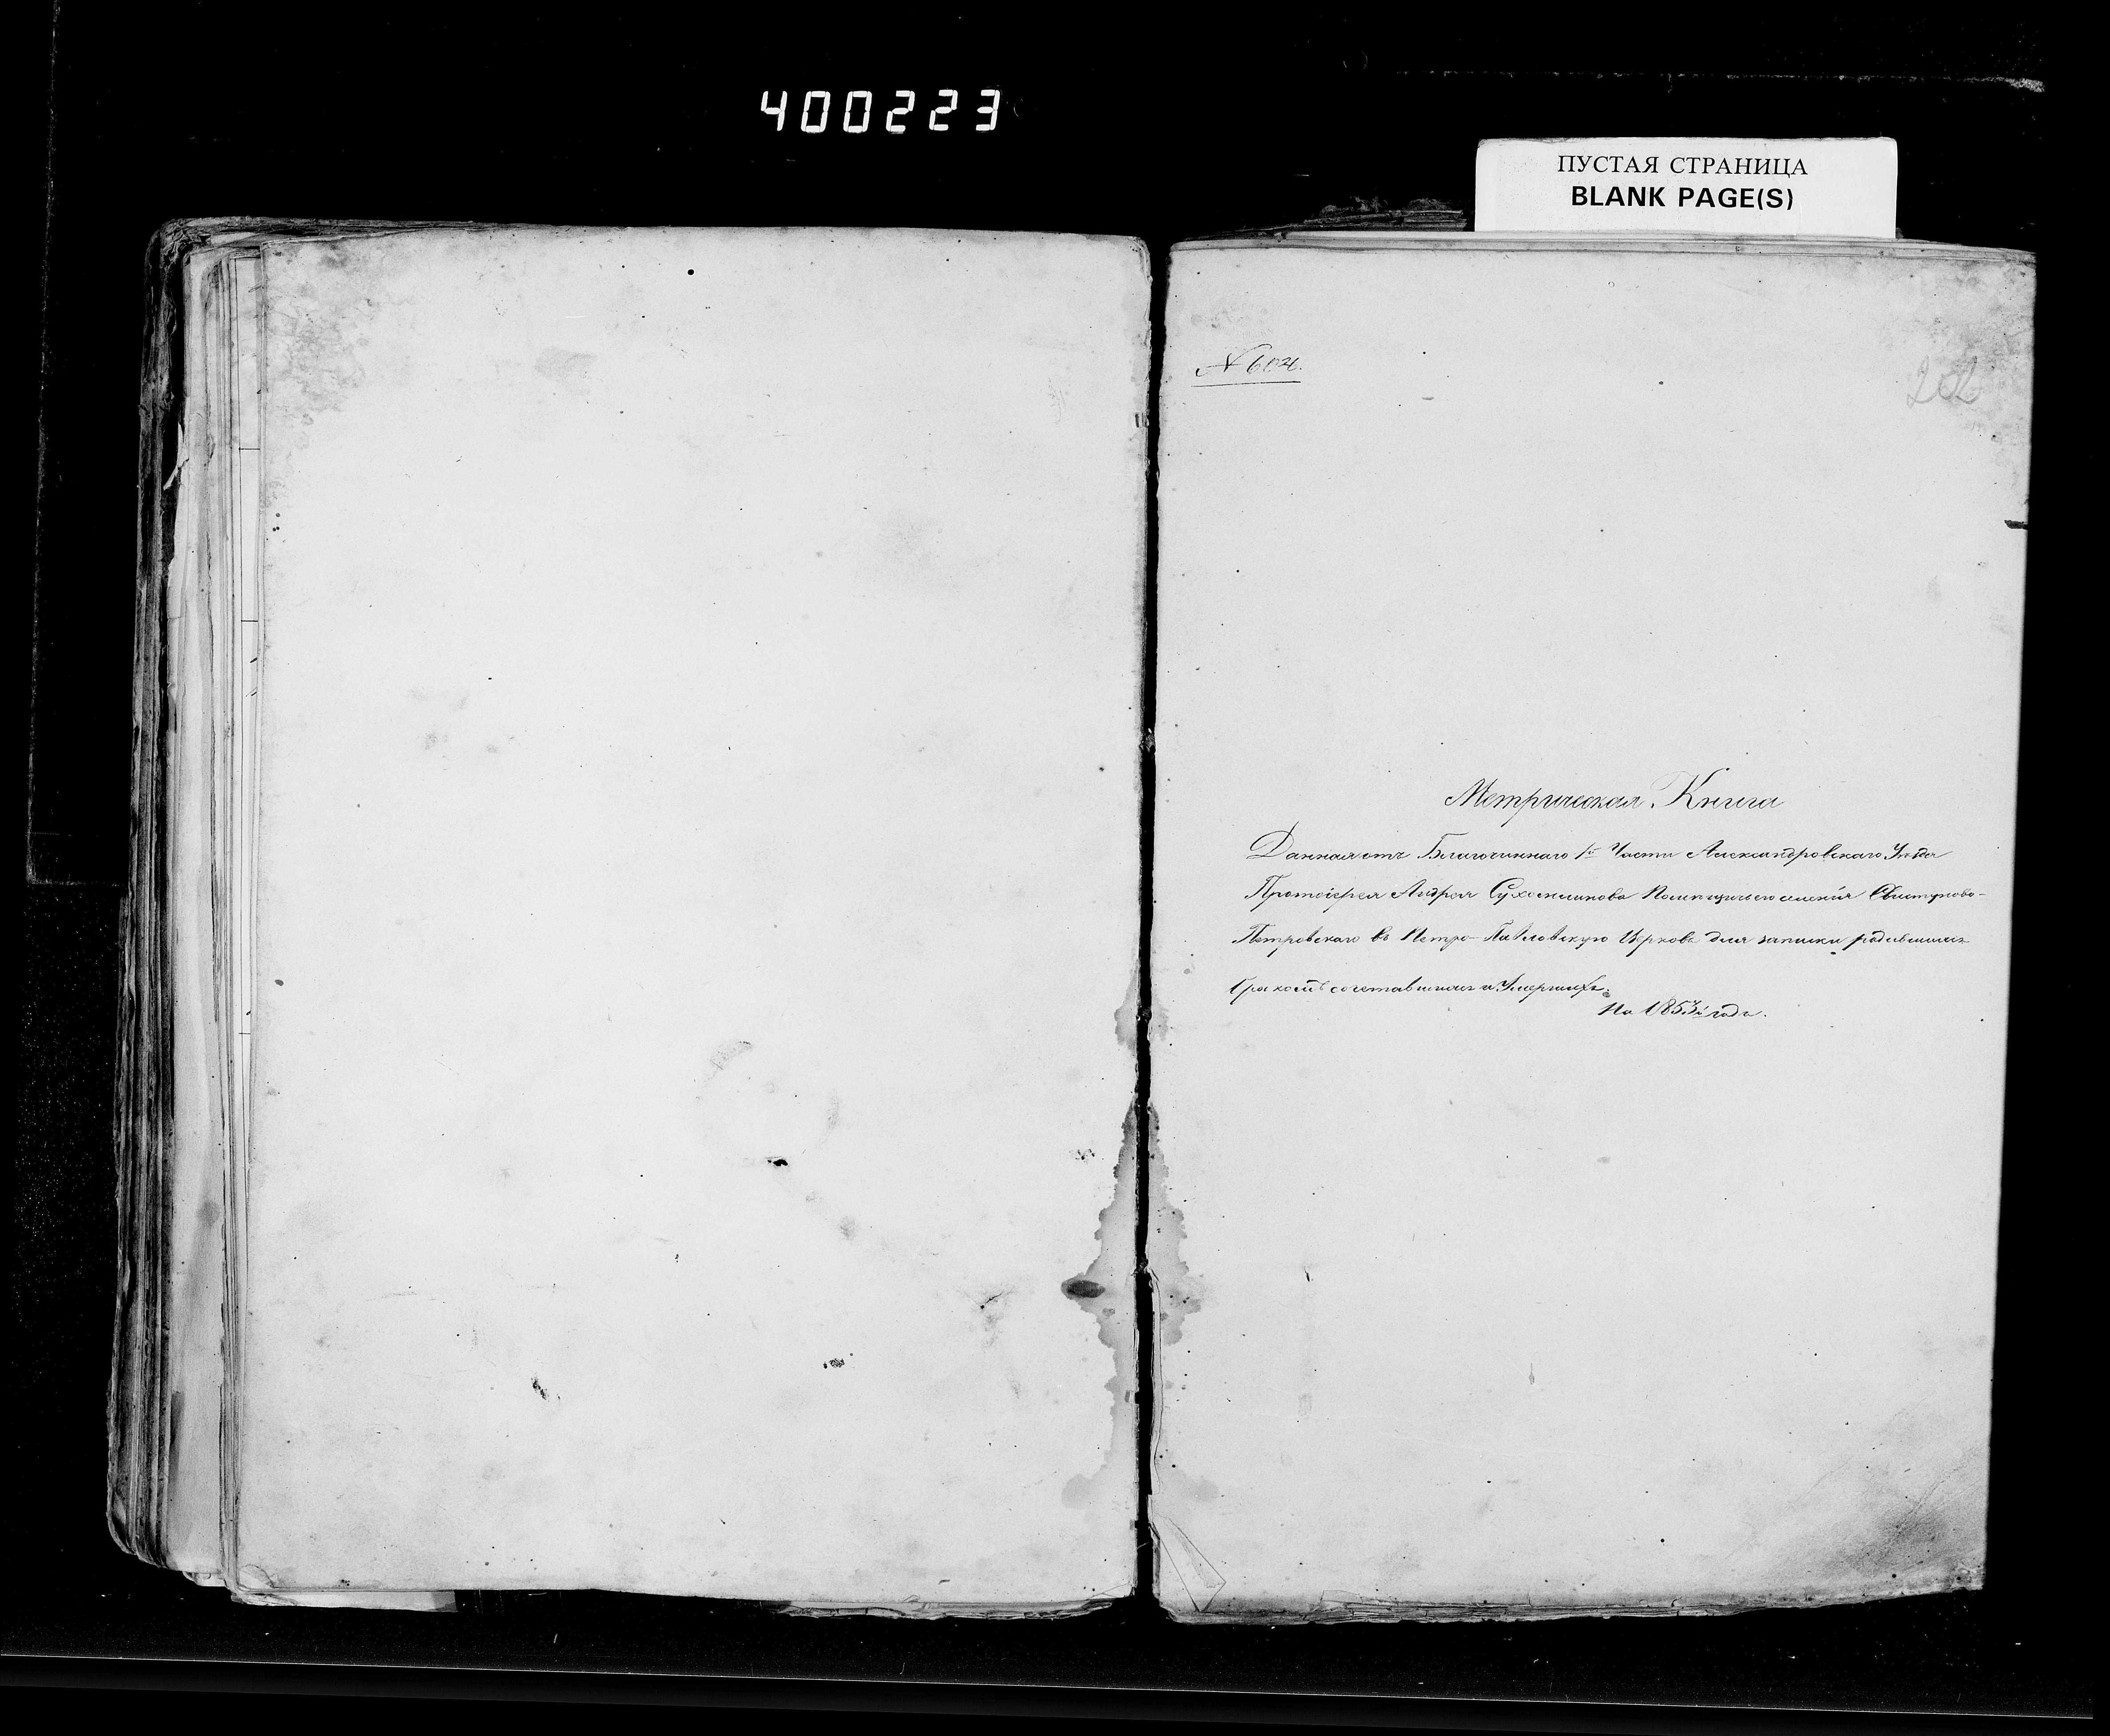 400223
ПУСТАЯ СТРАНИЦА
BLANK PAGE(S)
№ 604.
202
Метрическая Книга
Данная отъ Благочиннаго 1й Части Александровскаго Уезда
Протоіерея Андрея Сухомлинова Помещичьего селенія
Петровскаго въ Петро-Павловскую Церковь для записки родившихся
бракомъ сочетавшихся и Умершихъ.
На 1853й годъ.